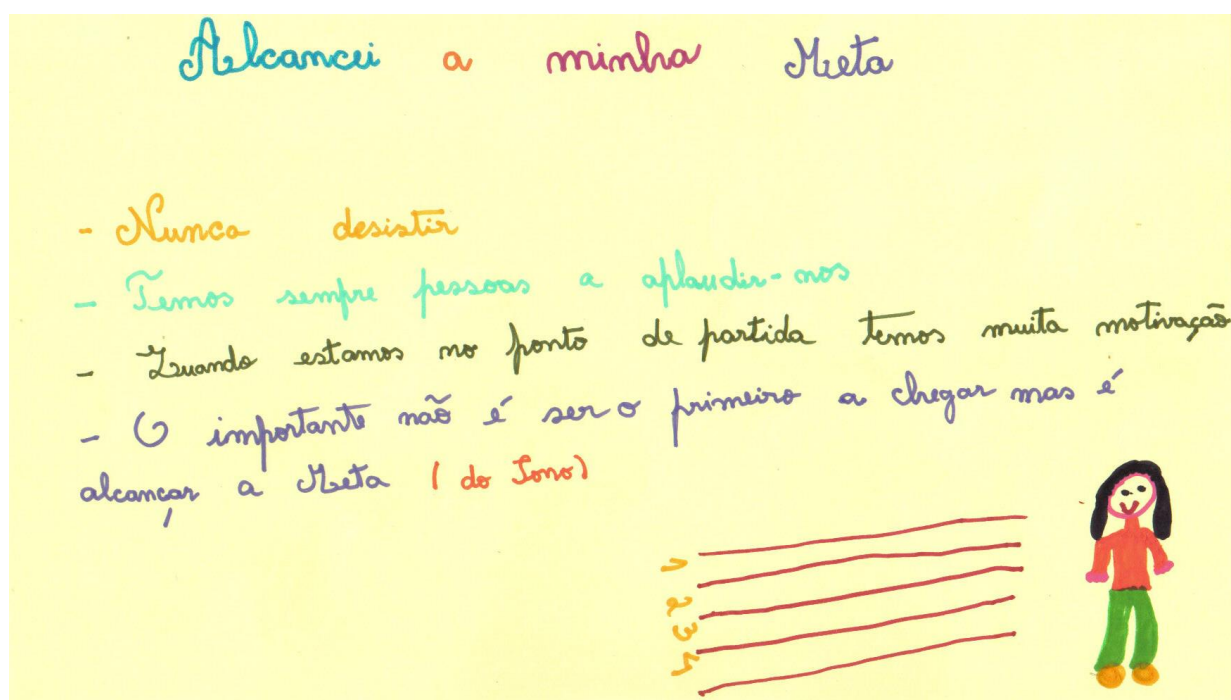 Alcancei a minha Meta
- Nunca desistir
- Temos sempre pessoas a aplaudir-nos
- Quando estamos no ponto de partida temos muita motivação
- O importante não é ser o primeiro a chegar mas é
alcançar a Meta (do Sono)
1
2
3
4